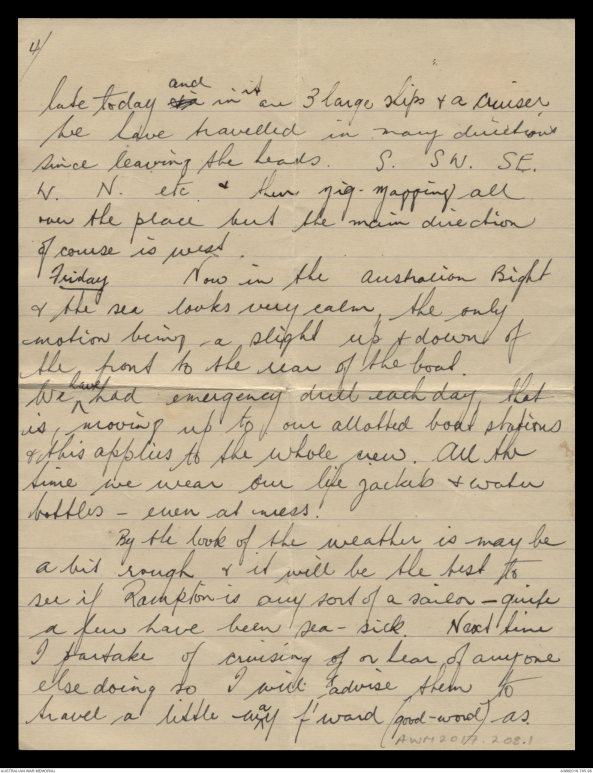 4/
late today and in it are 3 large ships & a cruiser
We have travelled in many directions
since leaving the heads. S. SW. SE.
W. N. etc. & then zig-zagging all
over the place but the main direction
of course is west.
Friday Now in the Australian Bight
& the sea looks very calm, the only
motion being a slight up & down of
the front to the rear of the boat.
We have had emergency drill each day, that
is, moving up to our allotted boat stations
& this applies to the whole crew. All the
time we wear our life jackets & water
bottles – even at mess!
By the look of the weather is may be
a bit rough & it will be the test to
see if Rampton is any sort of a sailor – quite
a few have been sea-sick. Next time
I partake of cruising of or hear of anyone
else doing so I will advise them to
travel a little way f'ward (good-word) as
AWM2017.208.1
AUSTRALIAN WAR MEMORIAL